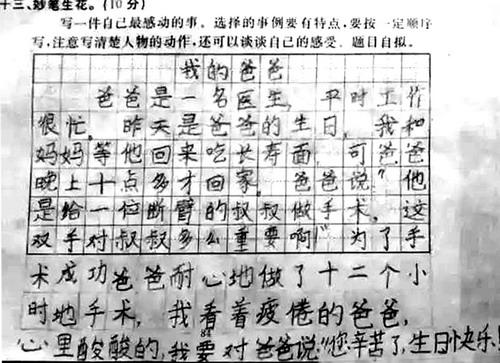 十三、妙笔生花。(10分)
写一件自己最感动的事。选择的事例要有特点，要按一定顺序
写，注意写清楚人物的动作，还可以谈谈自己的感受。题目自拟。
我的爸爸
爸爸是一名医生，平时工作
很忙。昨天是爸爸的生日，我和
妈妈等他回来吃长寿面，可爸爸
晚上十点多才回家，爸爸说"他
是给一位断臂的叔叔做手术，这
双手对叔叔多么重要啊"为了手
术成功爸爸耐心地做了十二个小
时地手术，我看着疲倦的爸爸，
心里酸酸的，我要对爸爸说"您辛苦了，生日快乐